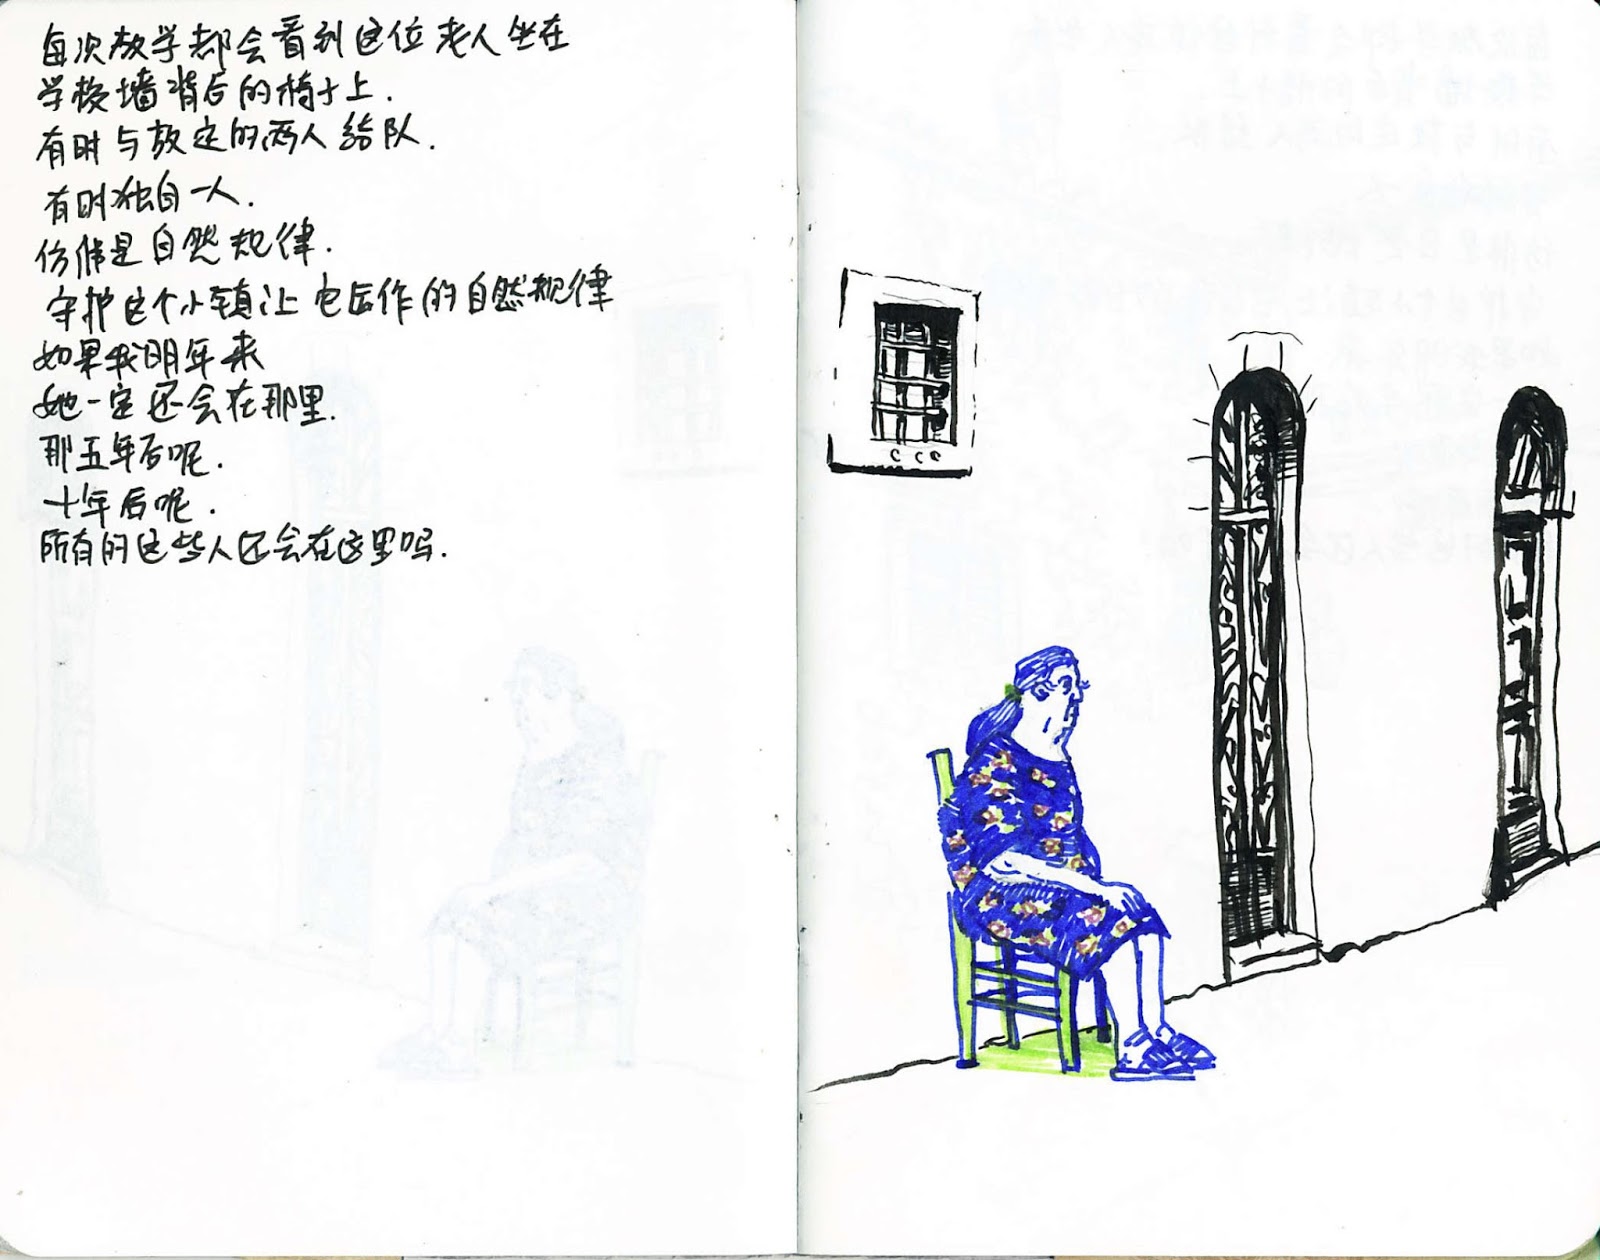 每次放学都会看到这位老人坐在
学校墙背后的椅子上.
有时与 定的两人结队.
有时独自一人.
仿佛是自然规律.
守护这个小镇让它 作的自然规律
如果我明年来
她一定还会在那里.
那五年后呢.
十年后呢.
所有的这些人还会在这里吗.